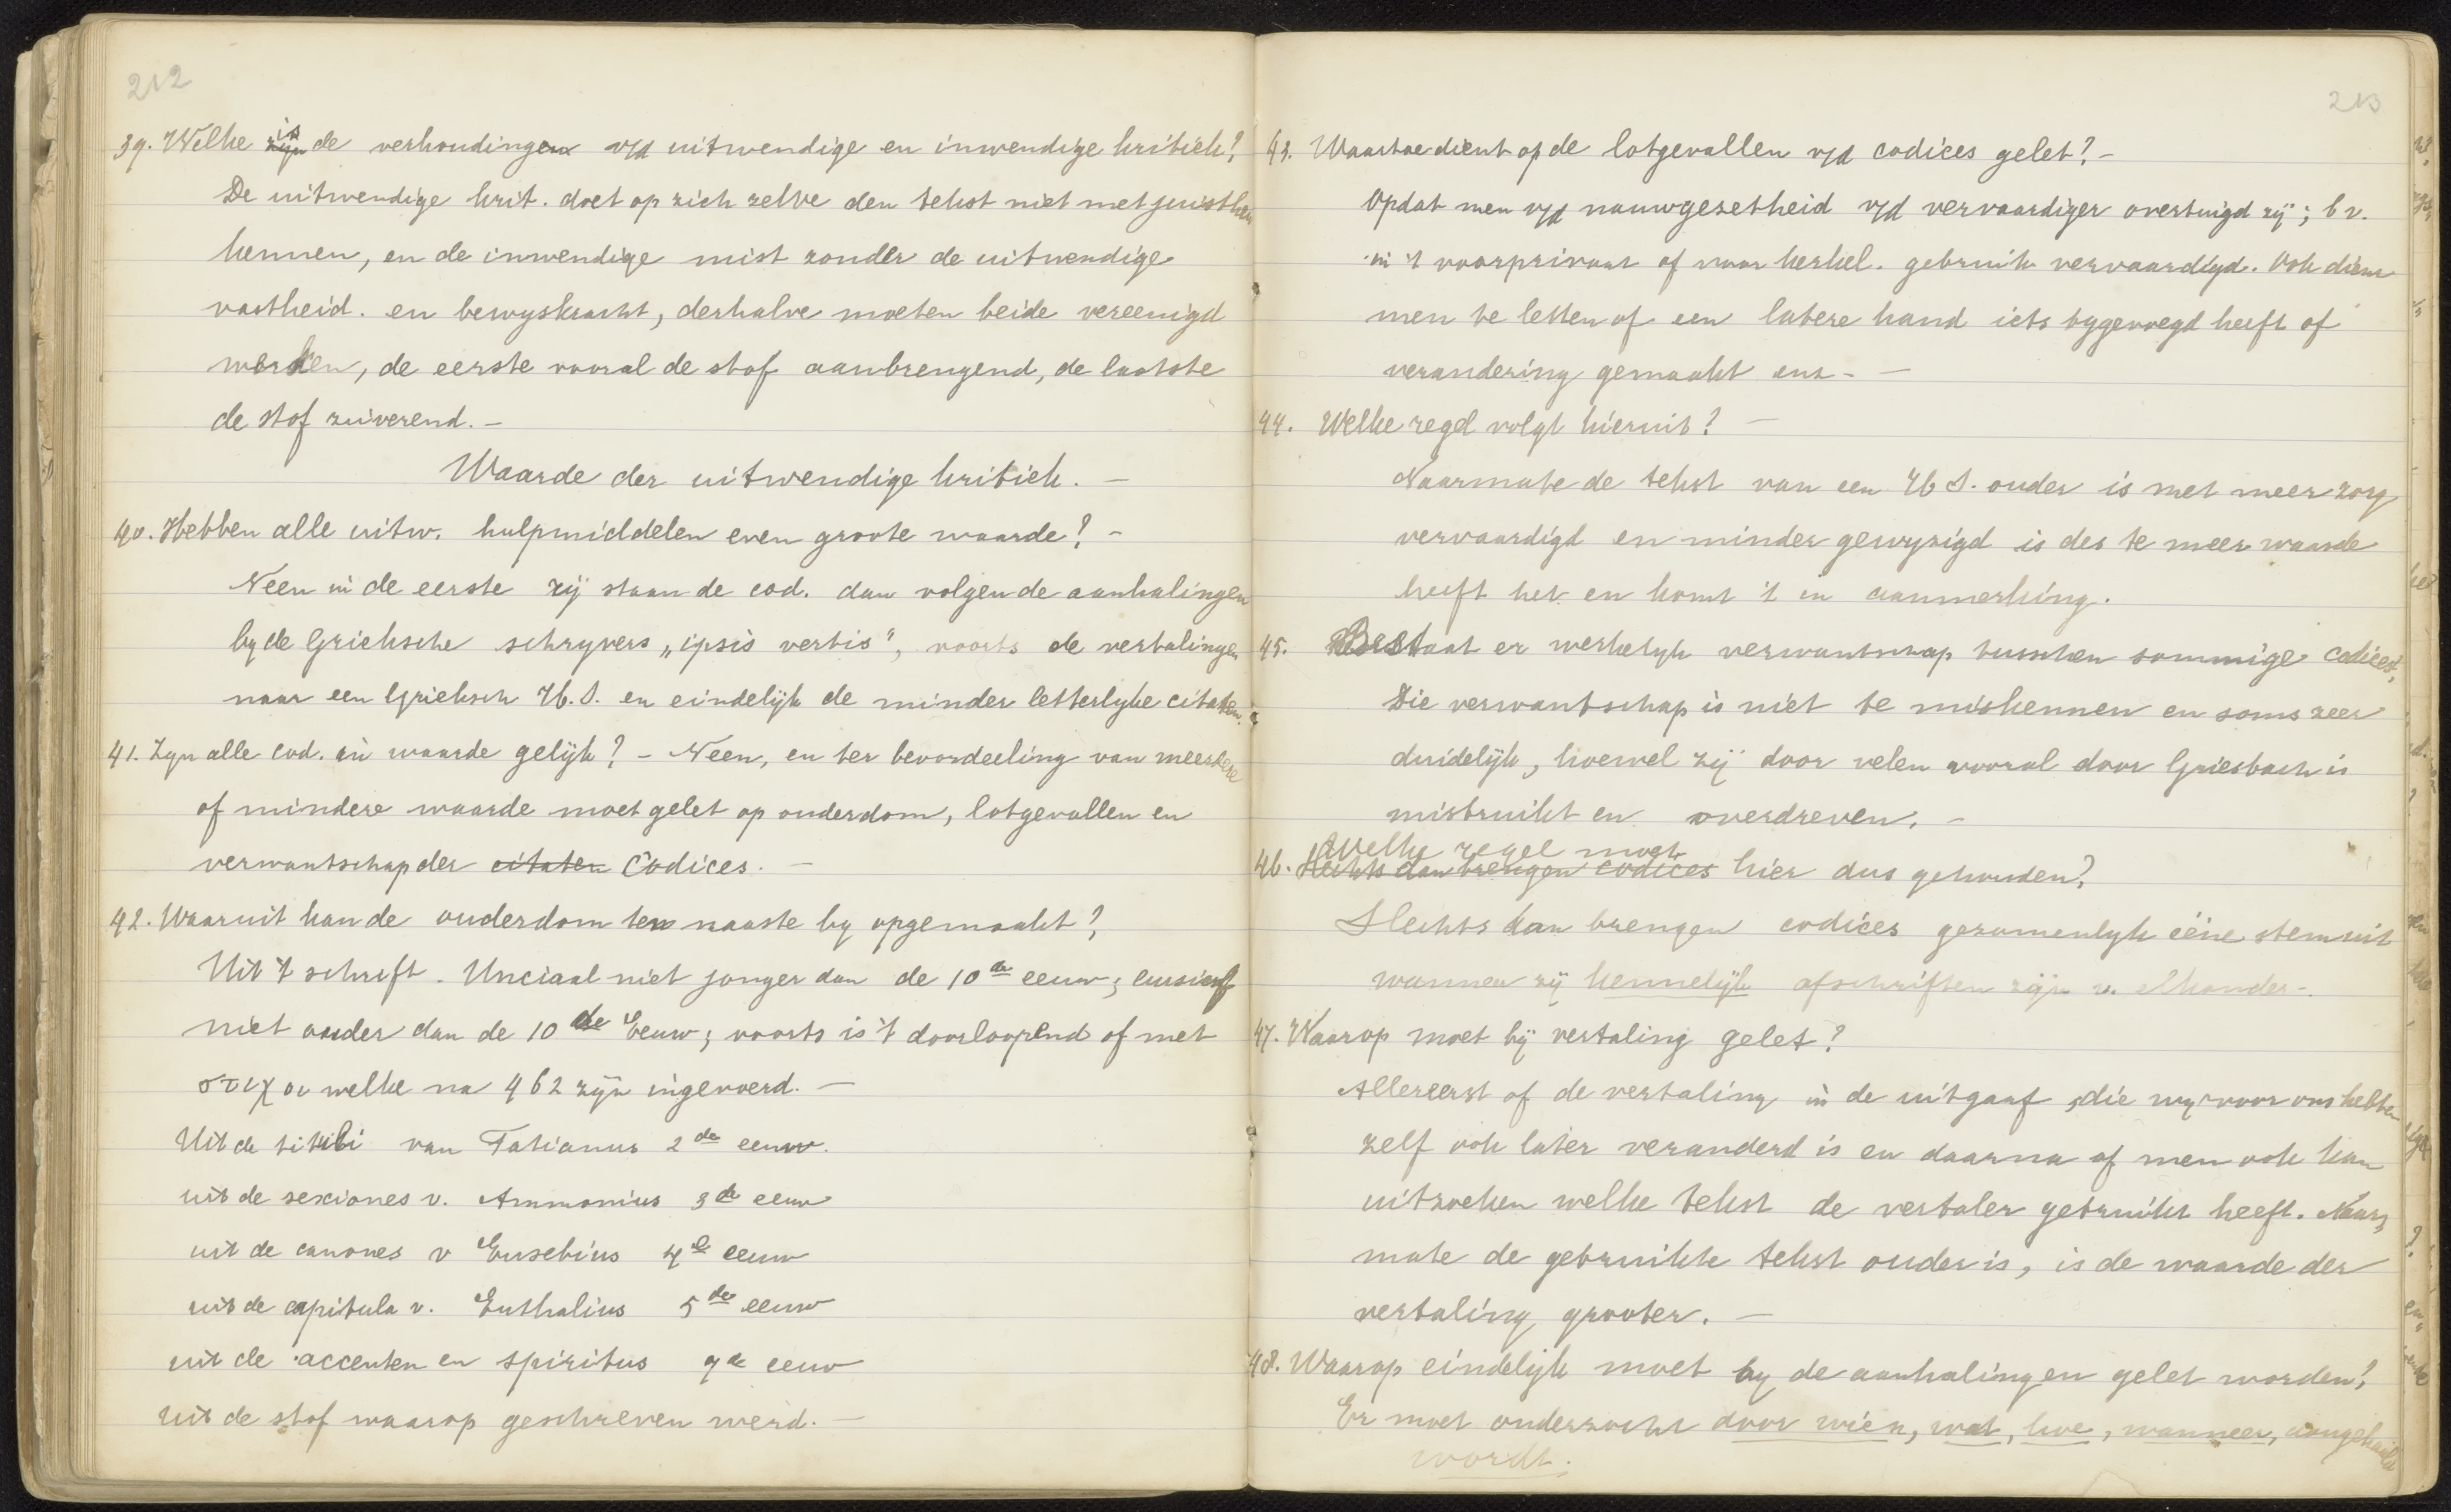 212
39. Welke is de verhouding v/d uitwendige en inwendige kritiek?
De uitwendige krit. doet op zich zelve den tekst niet met juistheid
kennen, en de inwendige mist zonder de uitwendige
vastheid. en bewyskracht, derhalve moeten beide vereenigd
werken, de eerste vooral de stof aanbrengend, de laatste
de stof zuiverend. -
Waarde der uitwendige kritiek. -
40. Hebben alle uitw. hulpmiddelen even groote waarde? -
Neen in de eerste rij staan de cod. dan volgen de aanhalingen
by de Grieksche schryvers „ipsis verbis", voorts de vertalingen
naar een Grieksch H.S. en eindelijk de minder letterlyke citaten.
41. Zyn alle cod. in waarde gelijk? - Neen, en ter beoordeeling van meerdere
of mindere waarde moet gelet op ouderdom, lotgevallen en
verwantschap der citaten Codices. -
42. Waaruit kan de ouderdom ten naaste by opgemaakt?
Uit 't schrift. Unciaal niet jonger dan de 10de eeuw; cursief
niet ouder dan de 10de Eeuw; voorts is 't doorloopend of met
στιχοι welke na 462 zijn ingevoerd. -
Uit de tituli van Tatianus 2de eeuw.
uit de sexiones v. Ammonius 3de eeuw
uit de canones v Eusebius 4e eeuw
uit de capitula v. Euthalius 5de eeuw
uit de accenten en spiritus 7de eeuw
uit de stof waarop geschreven werd. -
213
43. Waartoe dient op de lotgevallen v/d codices gelet? -
Opdat men v/d nauwgezetheid v/d vervaardiger overtuigd zij; b v.
in 't voor privaat of voor kerkel. gebruik vervaardigd. Ook dient
men te letten of een latere hand iets bygevoegd heeft of
verandering gemaakt enz. -
44. Welke regel volgt hieruit? -
Naarmate de tekst van een H S. ouder is met meer zorg
vervaardigd en minder gewyzigd is des te meer waarde
heeft het en komt 't in aanmerking.
45. Bestaat er werkelyk verwantschap tusschen sommige codices?
Die verwantschap is niet te miskennen en soms zeer
duidelijk, hoewel zij door velen vooral door Griesbach is
misbruikt en overdreven. -
Welke regel moet
46. Slechts dan brengen codices hier dus gehouden?
Slechts dan brengen codices gezamenlyk ééne stem uit
wanneer zij kennelijk afschriften zijn v. elkander -.
47. Waarop moet bij vertaling gelet?
Allereerst of de vertaling in de uitgaaf, die wy voor ons hebben
zelf ook later veranderd is en daarna of men ook kan
uitzoeken welke tekst de vertaler gebruikt heeft. Naar,
mate de gebruikte tekst ouder is, is de waarde der
vertaling grooter. -
48. Waarop eindelijk moet by de aanhalingen gelet worden?
Er moet onderzocht door wien, wat, hoe, wanneer, aangehaald
wordt.